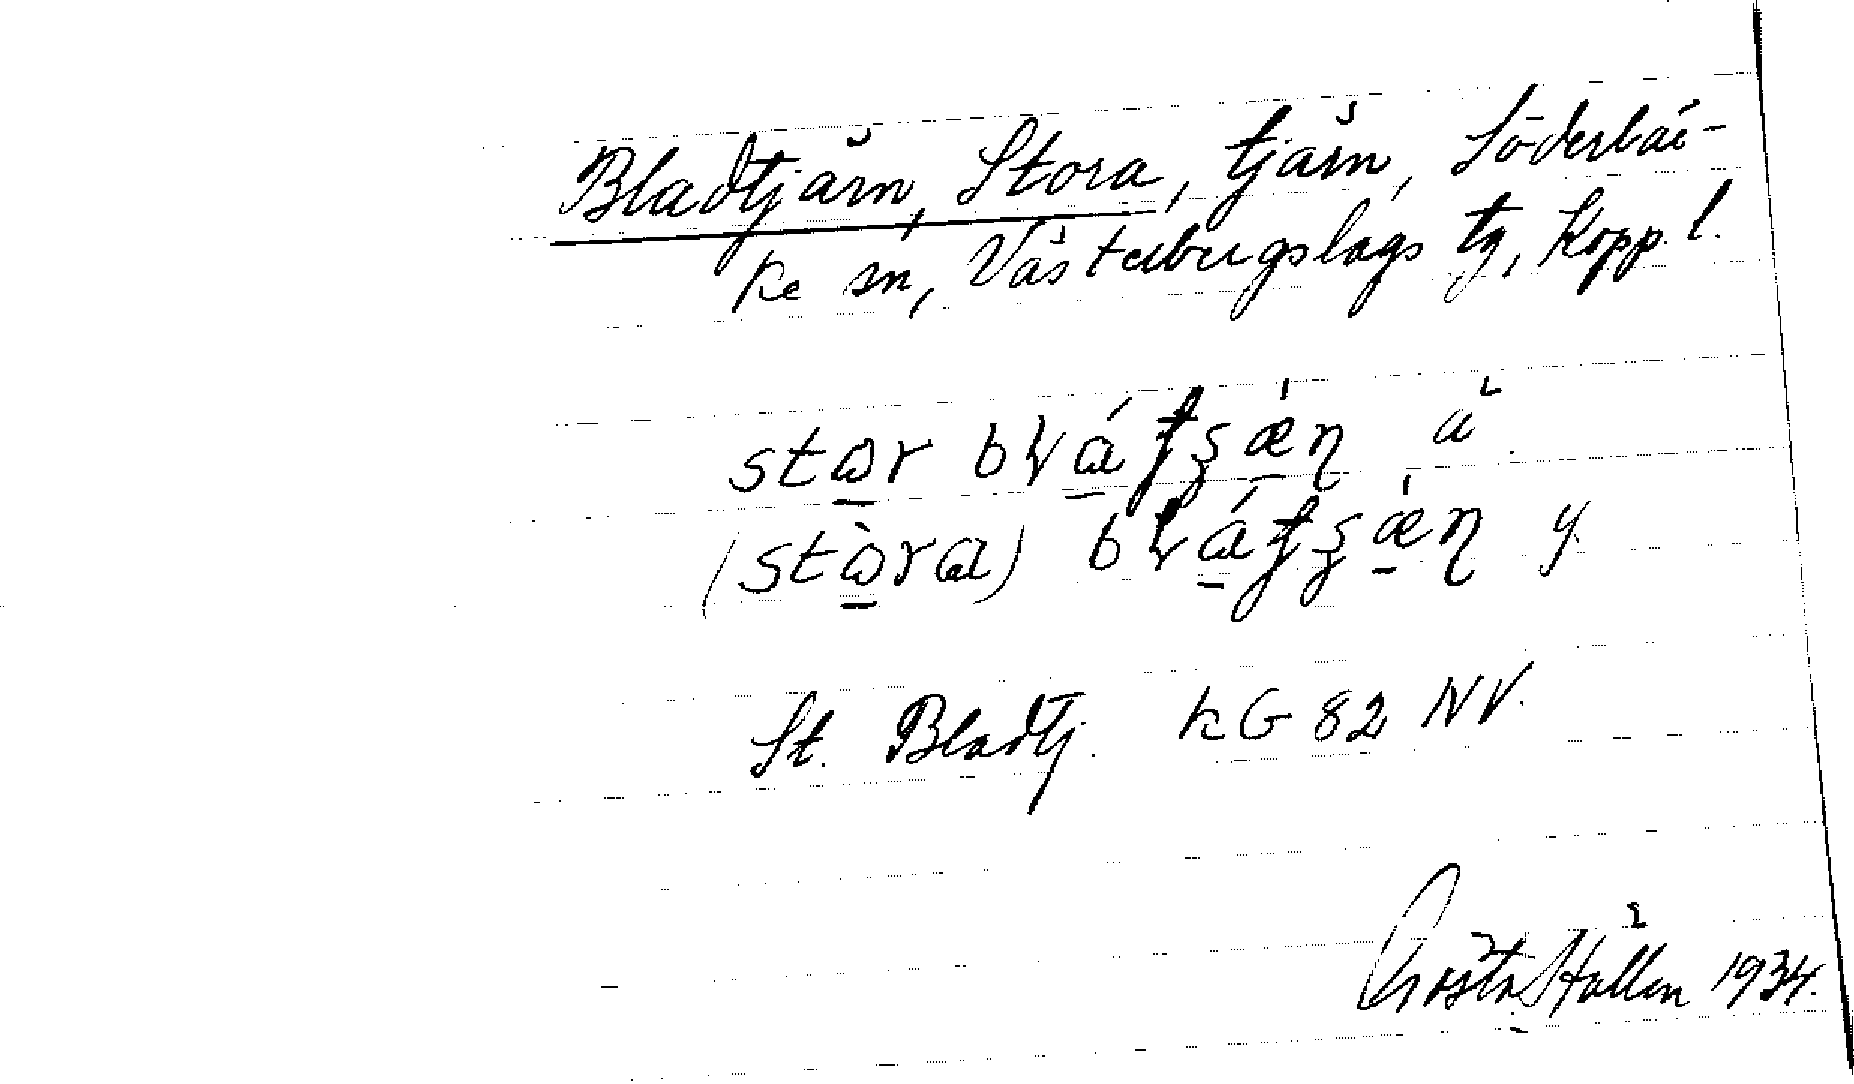 Bladtjärn, Stora, tjärn, Söderbär-
ke sn, Västerbergslags tg, Kopp. l.
stɷr bɫátʂæ̀ɳ ä.
(stɷ̀ra) bɫátʂæ̀ɳ y.
St. Bladtj. KG 82 NV.
Gösta Hallén 1934.